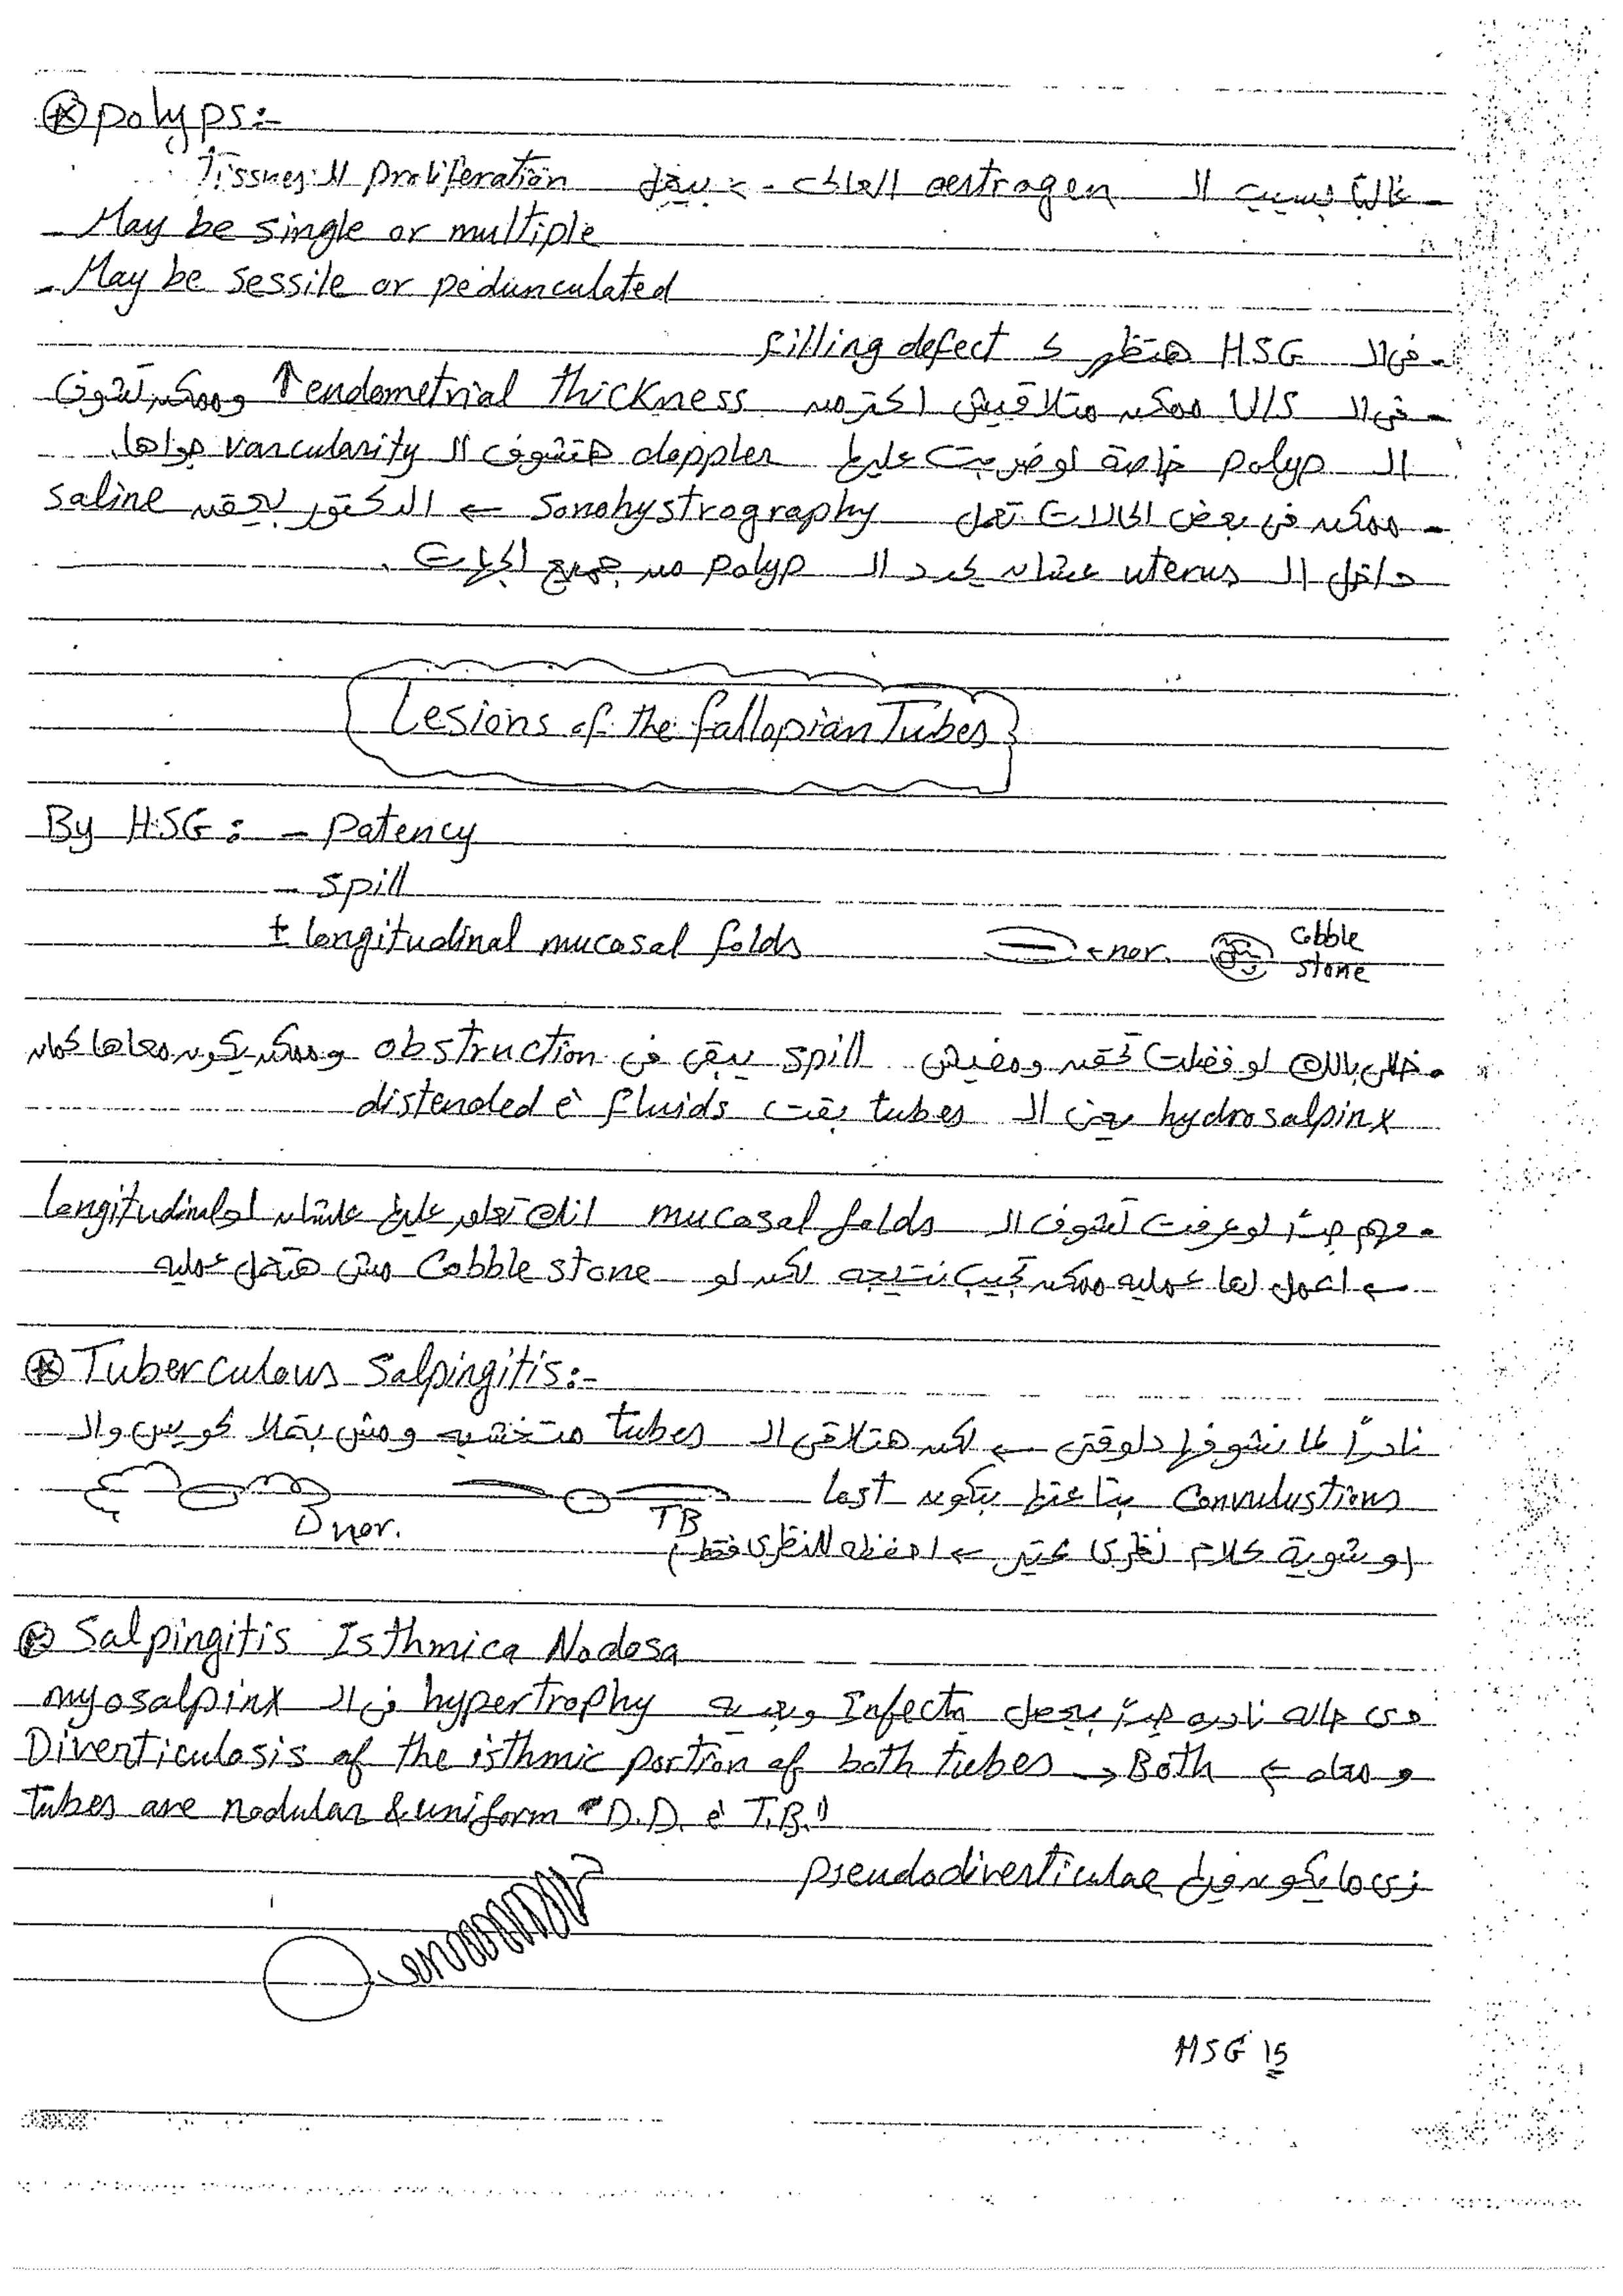 ⊛ polyps:-
- غالبًا بسبب الـ oestrogen العالى -> بيعمل proliferation للـ Tissues
- May be single or multiple
- May be sessile or pedunculated
- فى الـ HSG هتظهر كـ filling defect
- فى الـ U/S ممكن متلاقيش اكتر من ↑ endometrial thickness وممكن تشوف
الـ polyp خاصة لو ضربت عليها doppler هتشوف الـ varcularity جواها.
- ممكن فى بعض الحالات تعمل Sonohystrography ← الدكتور بيحقن saline
داخل الـ uterus عشان يحدد الـ polyp من جميع الجهات.
Lesions of the fallopian Tubes
By HSG: - Patency
- spill
± longitudinal mucosal folds
←nor.
Cobble stone
- خلى بالك لو فضلت تحقن ومفيش spill يبقى فى obstruction وممكن يكون معاها كمان
hydrosalpinx يعنى الـ tubes بقت distended è fluids
- مهم جدًا لو عرفت تشوف الـ mucosal folds انك تعلق عليها علشان لو longitudinal
← اعمل لها عمليه ممكن تجيب نتيجه لكن لو Cobble stone مش هتعمل عمليه
⊛ Tuberculous Salpingitis:-
نادرًا لما نشوفها دلوقتى ← لكن هتلاقى الـ tubes متخشبه ومش بتملا كويس والـ
Convulustions بتاعتها بتكون lost
nor.
TB
(و شوية كلام نظرى كتير ← احفظه للنظرى فقط)
⊛ Salpingitis Isthmica Nodosa
دى حاله نادره جدًا بيحصل Infectn وبعديه hypertrophy فى الـ myosalpinx
و معاه ← Diverticulosis of the isthmic portion of both tubes → Both
tubes are nodular & uniform "D.D. è T.B."
زى ما يكون فيها pseudodiverticulae
HSG 15